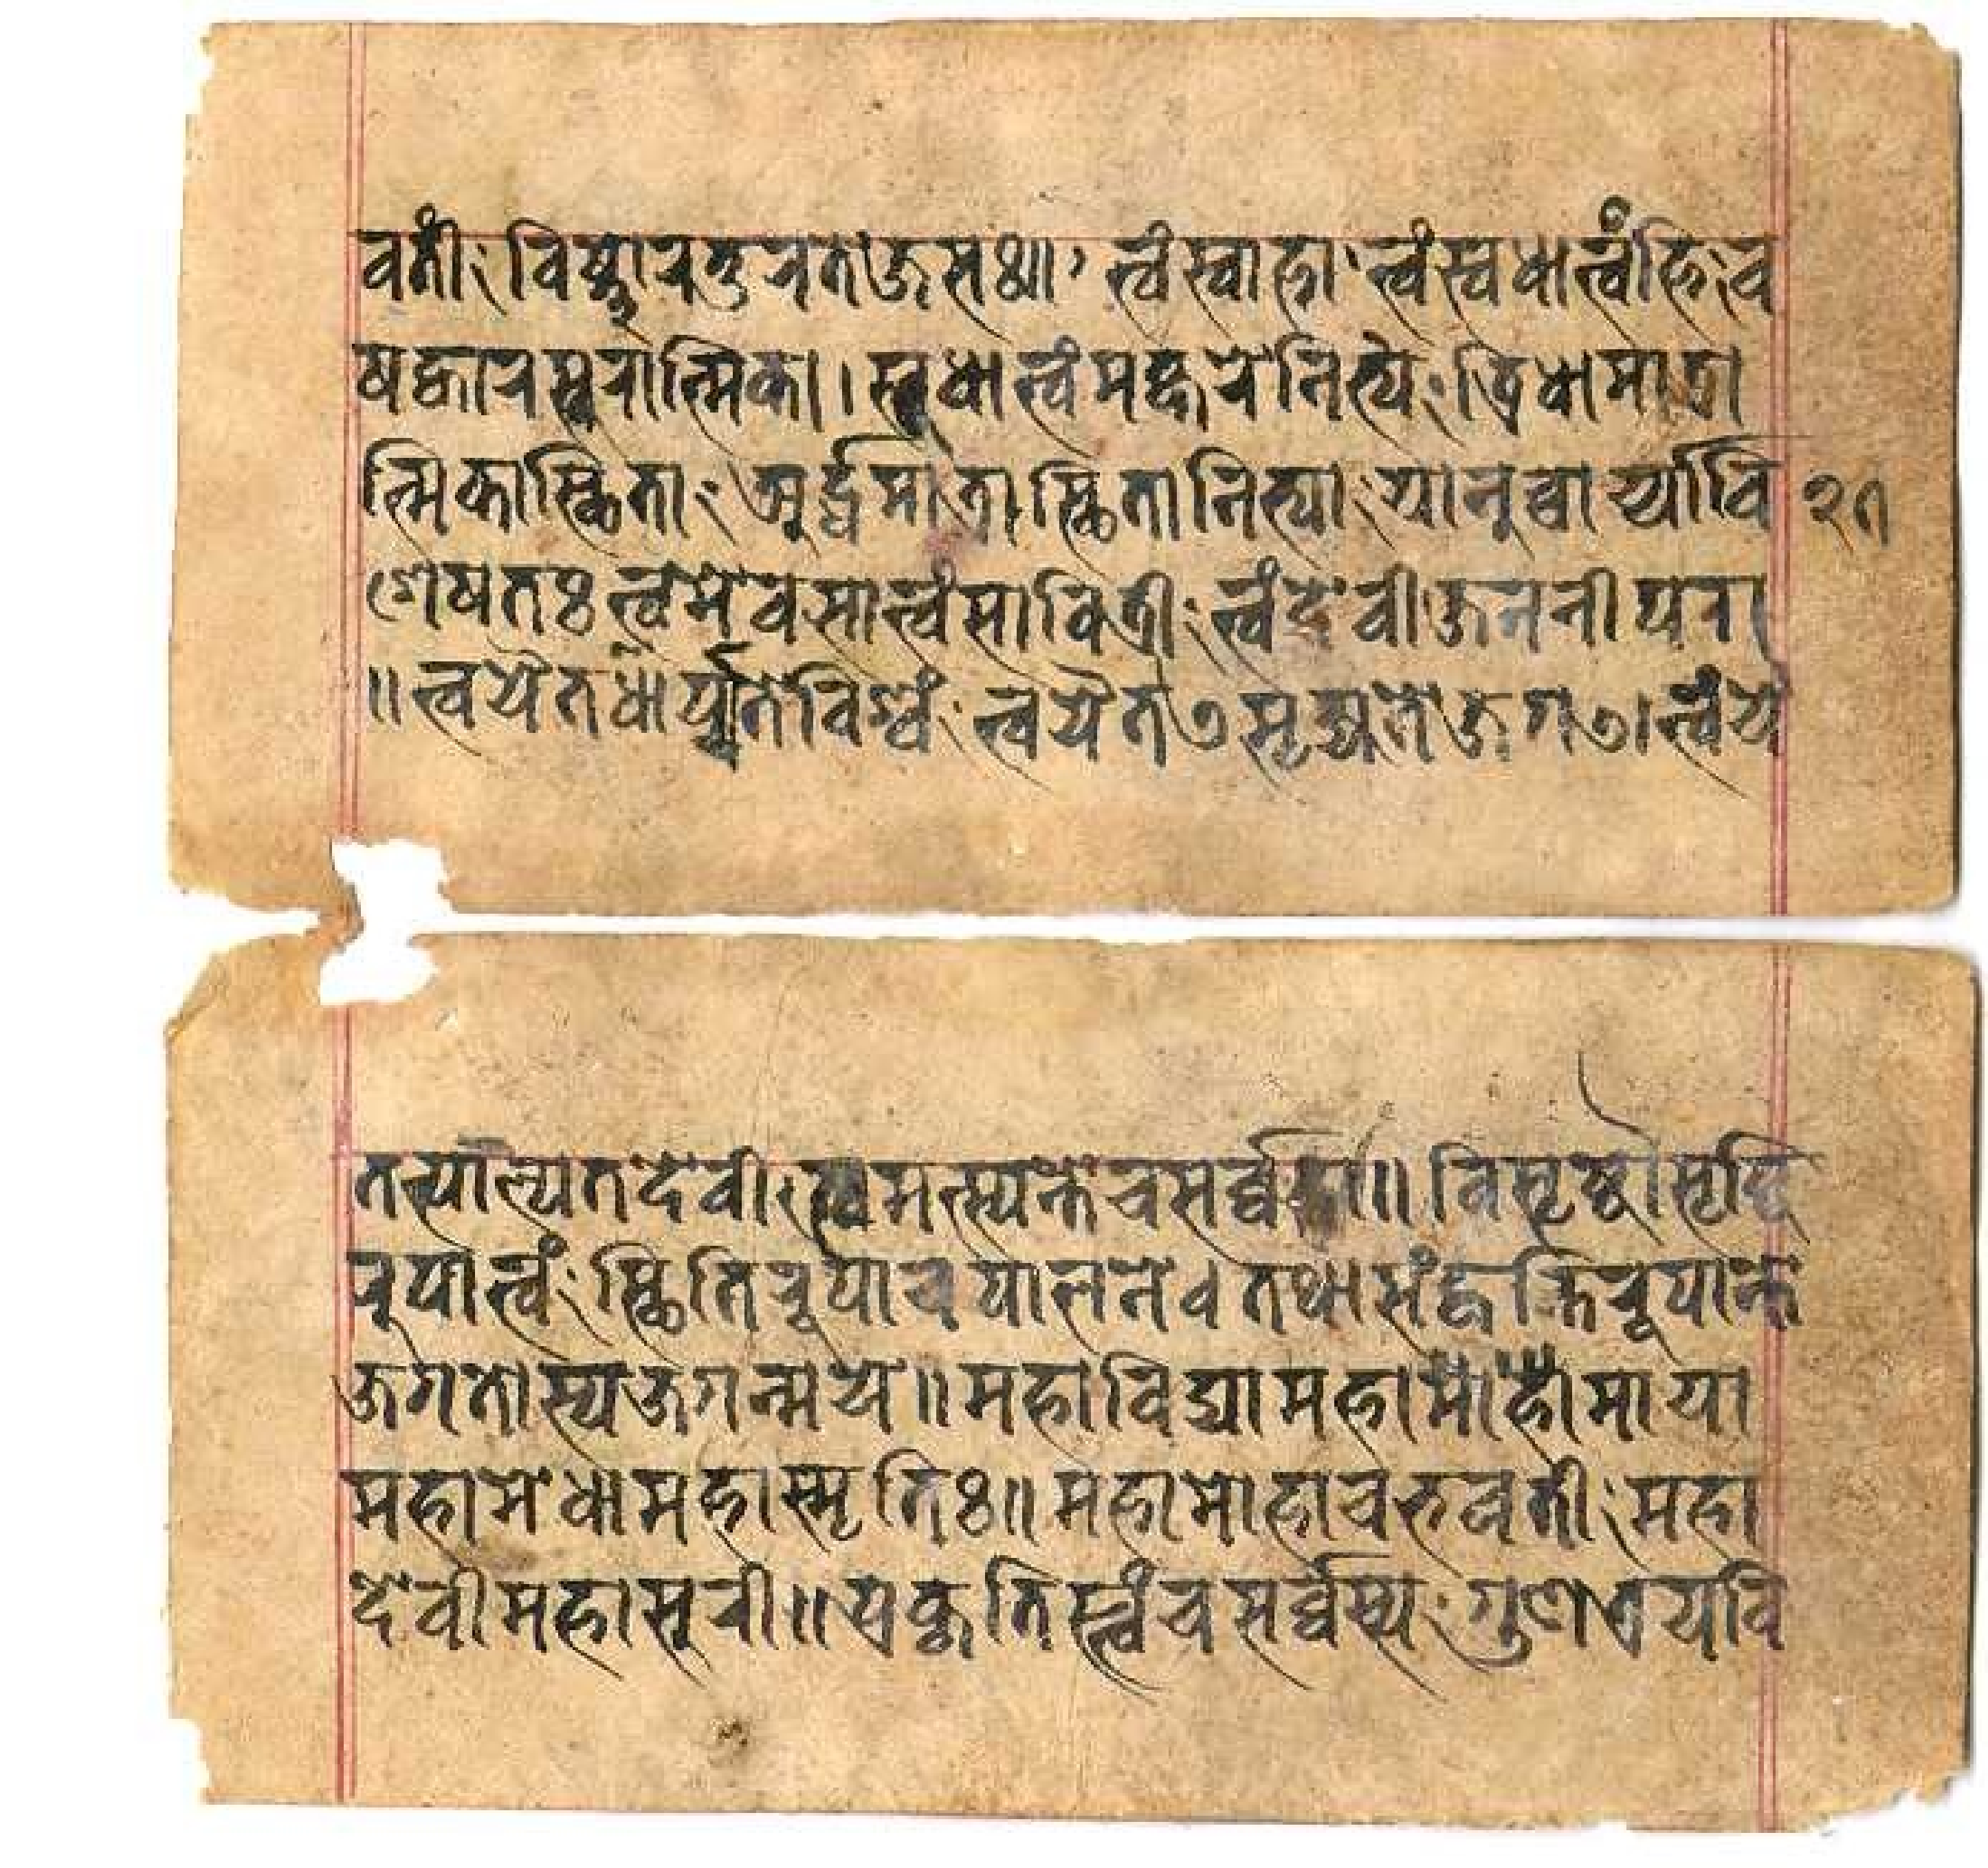 वतीः विष्णुारतुरतेजसः॥ त्वंस्वाहा त्वंस्वधात्वंहिः व
षट्कारस्वरात्मिका। । सुधात्वंमक्षरेनित्येः त्रिधामात्रा
त्मिकास्थिताः अर्द्धमात्रास्थितानित्याः यानुच्चार्य्यावि
२त
शेषतः त्वमेवसात्वंसावित्रीः त्वंदेवीजननीपरा
॥ त्वयैतधार्य्यतेविश्वंः त्वयैतत्सृज्यतेजगत्। त्वये
तत्पाल्यतेदेवीः त्वमत्स्यन्तेचसर्व्वदा॥ विसृष्टौसृष्टि
रूपात्वंः स्थितिरूपाचपालने। तथासंहृतिरूपान्ते
जगतोस्यजगन्मये॥ महाविद्यामहामाेहाेमाया
महामेधामहास्मृतिः॥ महामोहाचरुवतीः महा
देवीमहासूरी॥ प्रकृतिस्त्वंचसर्व्वस्यः गुणत्रयवि